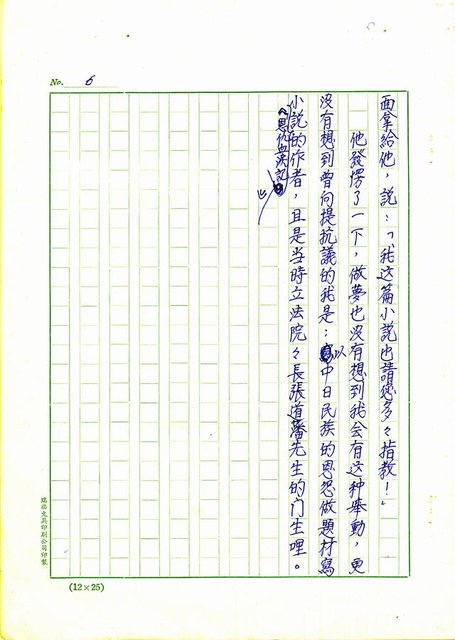 No. 6
面拿給他,說:「我这篇小說也請您多々指教!」
他發愣了一下,做夢也沒有想到我会有这种舉動,更
沒有想到曾向提抗議的我是:以中日民族的恩怨做題材寫
小說的作者,且是当時立法院々長張道藩先生的门生哩。
瑞裕文具印刷公司印製
(12×25)